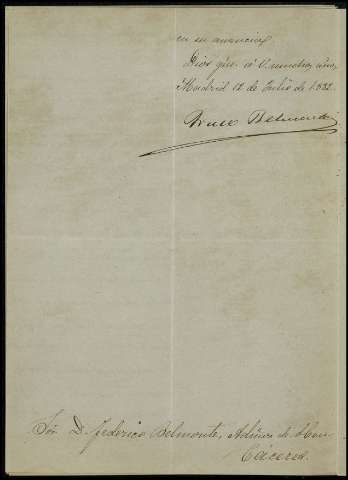 en su ausencia.
Dios gũe. á V. muchos años,
Madrid 12 de Julio de 1882.
Belmonte
Sōr. D. Federico Belmonte, de
Cáceres.